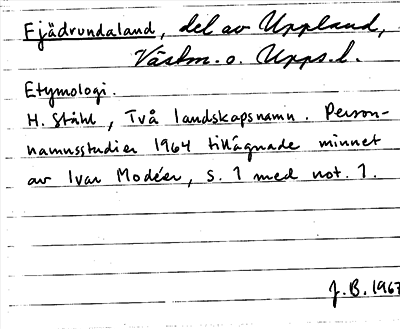 Fjädrundaland, del av Uppland,
Västm. o. Upps. l.
Etymologi.
H. Ståhl, Två landskapsnamn. Person-
namnsstudier 1964 tillägnade minnet
av Ivar Modéer, s. 1 med not. 1.
J.B. 1967